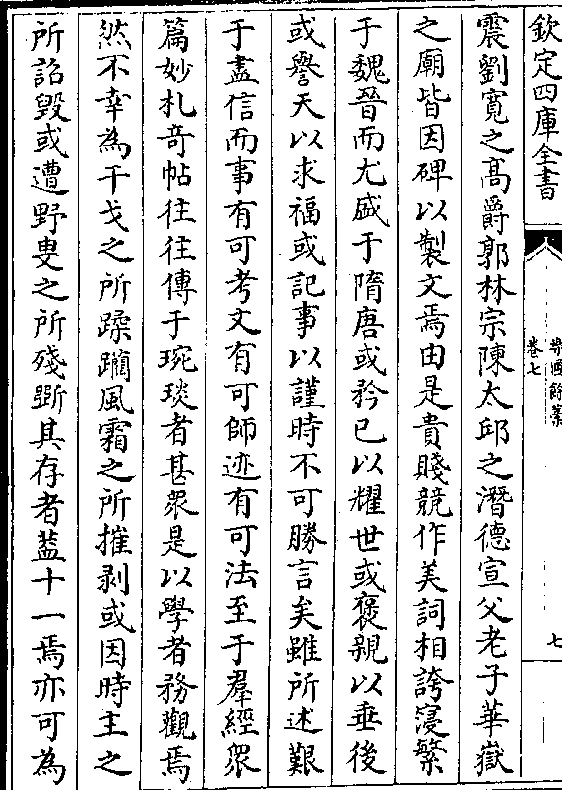 欽定四庫全書
卷七
七
震劉寛之髙爵郭林宗陳太邱之潛德宣父老子華嶽
之廟皆因碑以製文焉由是貴賤競作美詞相誇寖繁
于魏晉而尤盛于隋唐或矜已以耀世或褒親以垂後
或譽天以求福或記事以謹時不可勝言矣雖所述艱
于盡信而事有可考文有可師迹有可法至于羣經衆
篇妙札竒帖往往傳于琬琰者甚衆是以學者務觀焉
然不幸為干戈之所蹂躪風霜之所摧剥或因時主之
所詔毁或遭野叟之所殘斲其存者葢十一焉亦可為